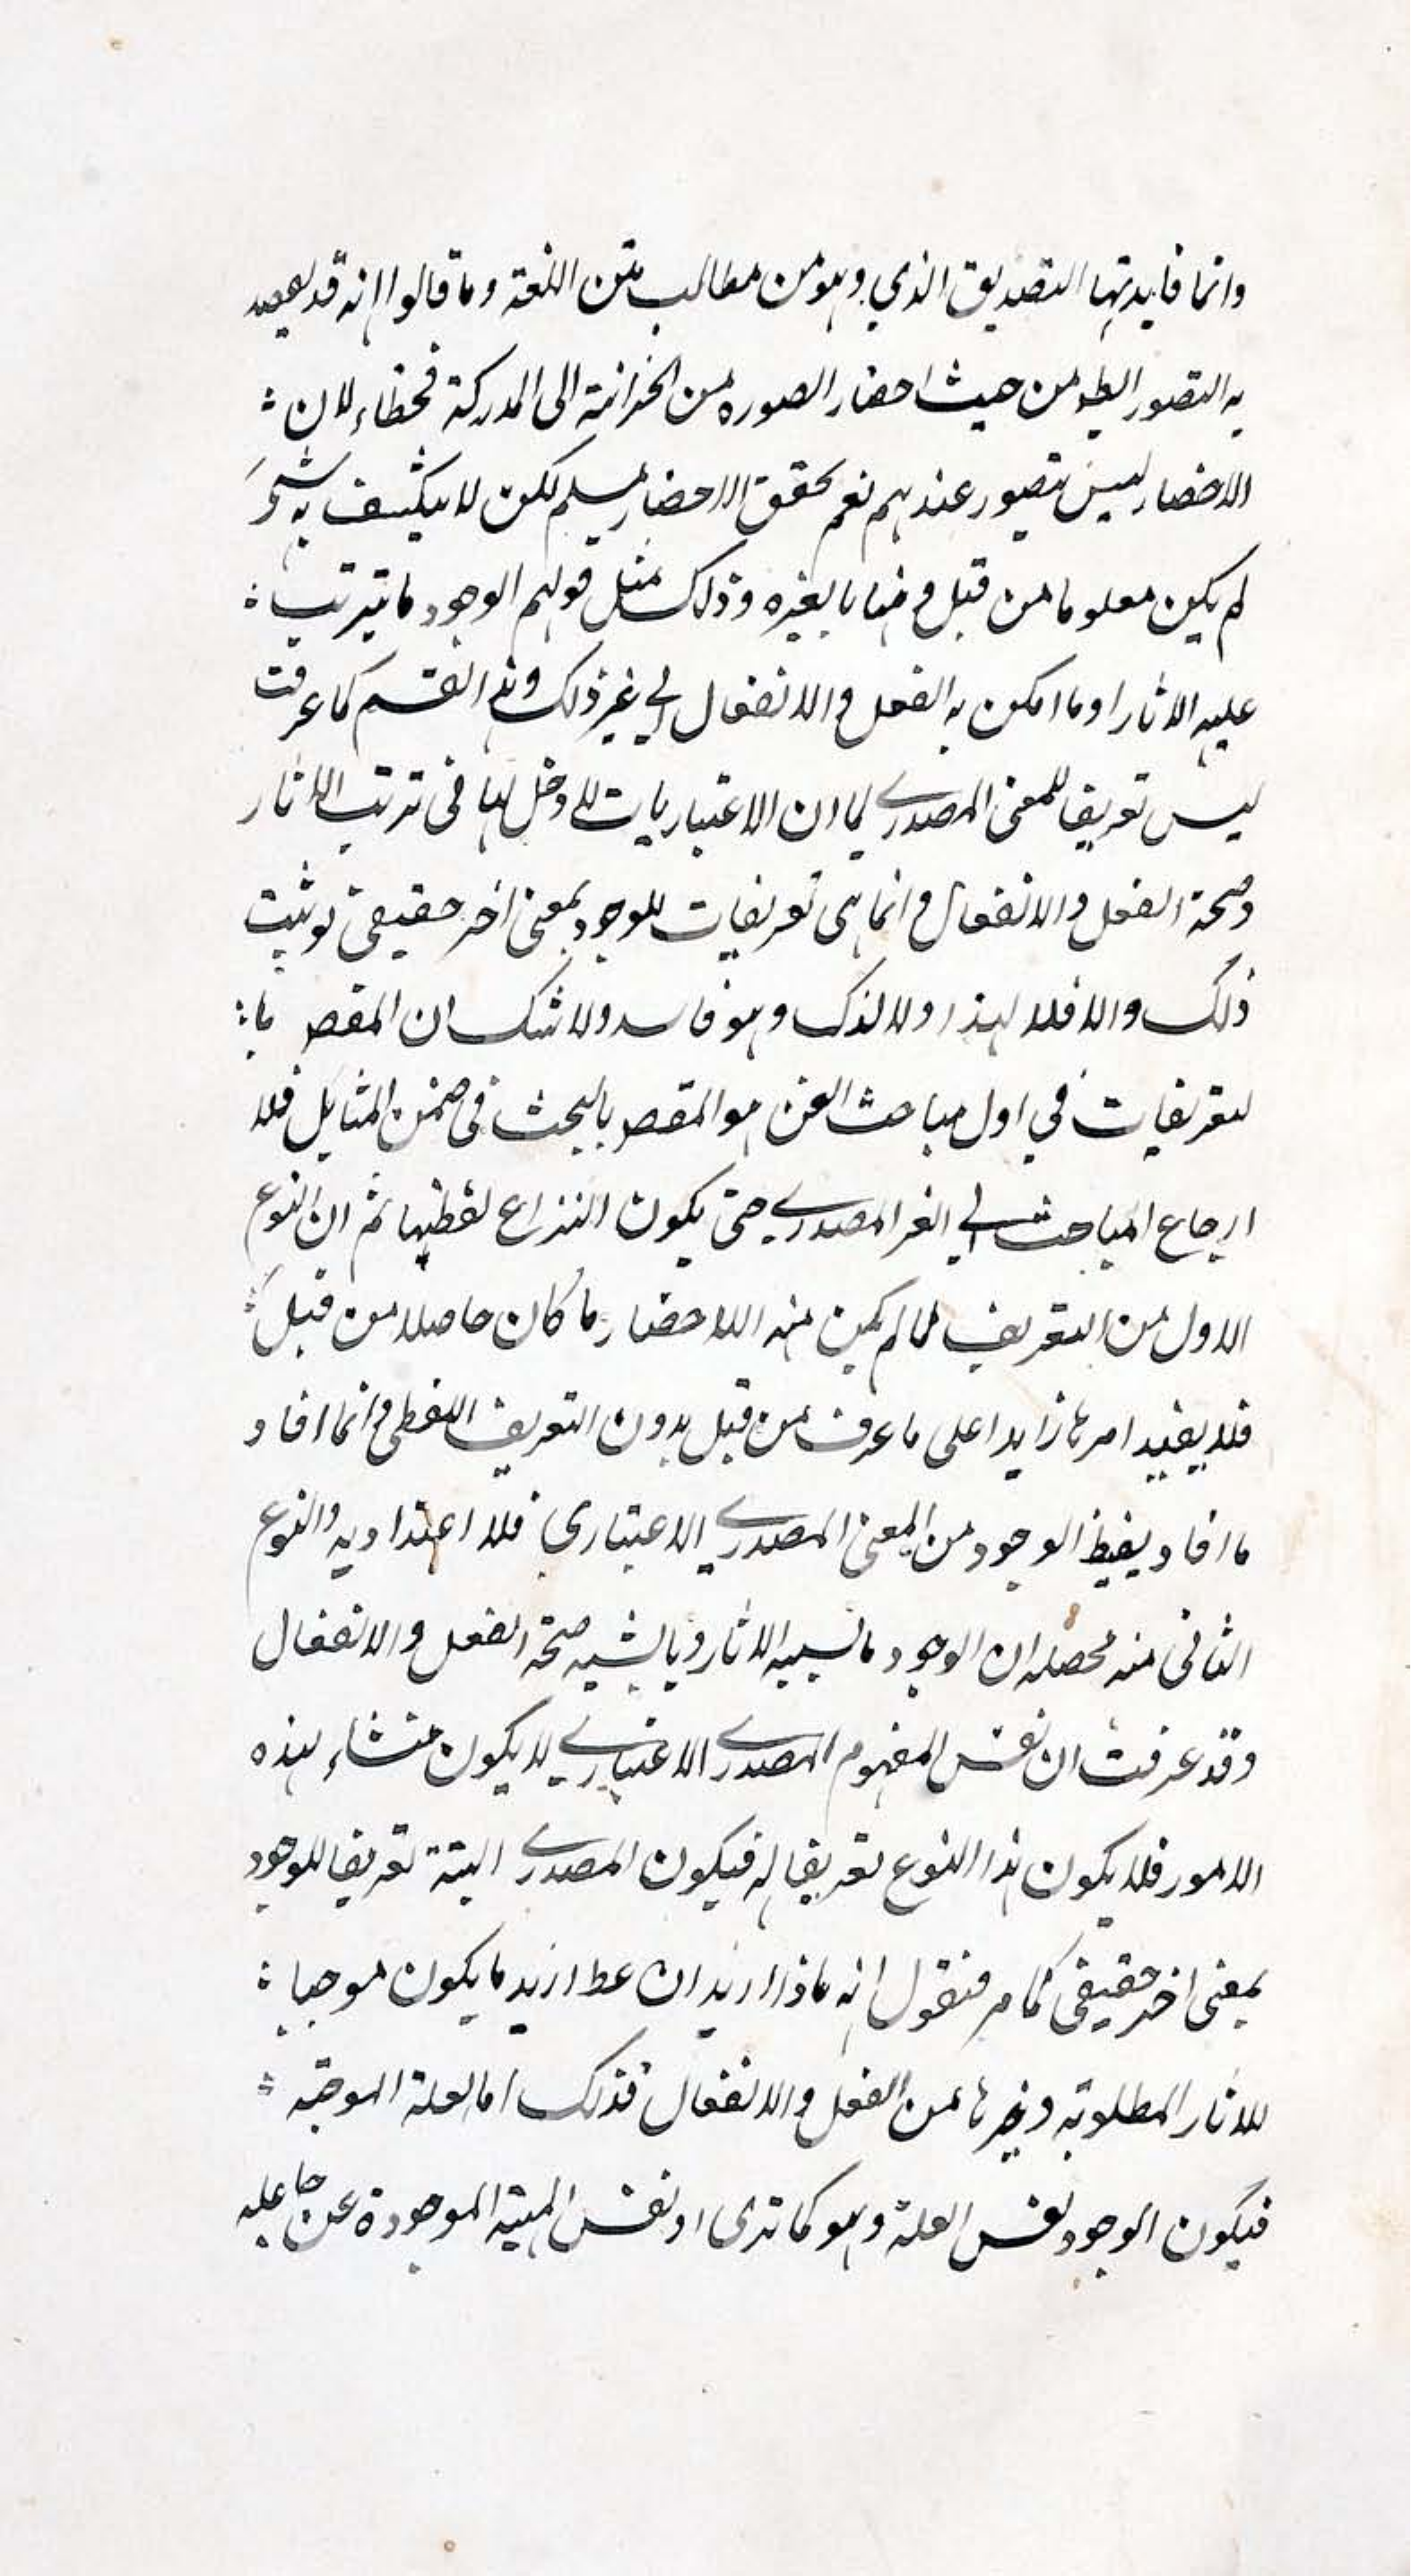 وانما فايدتها التصديق الذي وهو من مطالب متن اللغة وما قالوا انه قد يحصل
به التصور ايضا من حيث احضار الصوره من الخزانة الى المدركة فخطاء لان
الاحضار ليس بتصور عندهم نعم تحقق الاحضار مسلم لكن لا ينكشف به شئ
لم يكن معلوما من قبل و منها ما بغيره وذلك مثل قولهم الوجود ما يترتب
عليه الاثار او ما امكن به الفعل والانفعال الي غير ذلك وهذا القسم كما عرفت
ليس تعريفا للمعنى المصدري لما ان الاعتباريات لا دخل لها فى ترتب الاثار
وصحة الفعل والانفعال وانما هى تعريفات للوجود بمعنى اخر حقيقى لو ثبت
ذلك والا فلا لهذا ولا لذلك وهو فاسد ولا شك ان المقص با
لتعريفات في اول مباحث الفن هو المقص بالبحث فى ضمن المسايل فلا
ارجاع المباحث الي المصدري حتى يكون النزاع لفظيا ثم ان النوع
الاول من التعريف لما لم يكن منه الا احضار ما كان حاصلا من قبل
فلا يفيد امرا زايدا على ما عرف من قبل بدون التعريف اللفظى وانما افاد
ما افاد بلفظ الوجود من المعنى المصدري الاعتبارى فلا اعتداد به والنوع
الثانى منه محصله ان الوجود ما نسبه الاثار وما بسببه صحة الفعل والانفعال
وقد عرفت ان نفس المفهوم المصدري الاعتباري لا يكون منشاء لهذه
الامور فلا يكون هذا النوع تعريفا له فيكون المصدري البتة تعريفا للوجود
بمعنى اخر حقيقى كما مر فنقول انه ماذا اريد ان اريد ما يكون موجبا
للاثار المطلوبة وغيرها من الفعل والانفعال فذلك اما لعلة الموجبه
فيكون الوجود نفس العلة وهو كما ترى او نفس المهية الموجودة عن جاعله